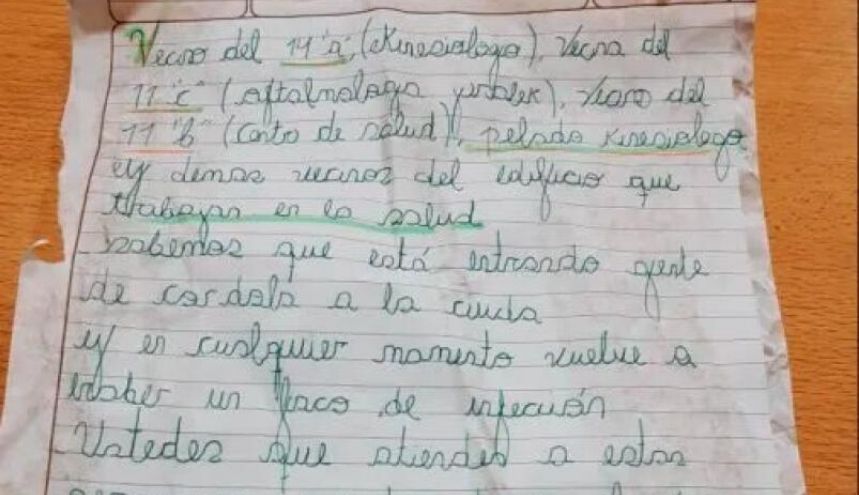 Vecino del 14 "a", (Kinesiologo), Vecina del
11 "c" (oftalmologa), Vecino del
11 "b" (Canto de salud), pelado Kinesiologo
ey demas vecinos del edificio que
trabajan en la salud
sabemos que está entrando gente
de cordola a la ciuda
y en cualquier momento vuelve a
haber un foco de infección
Ustedes que atienden a estas